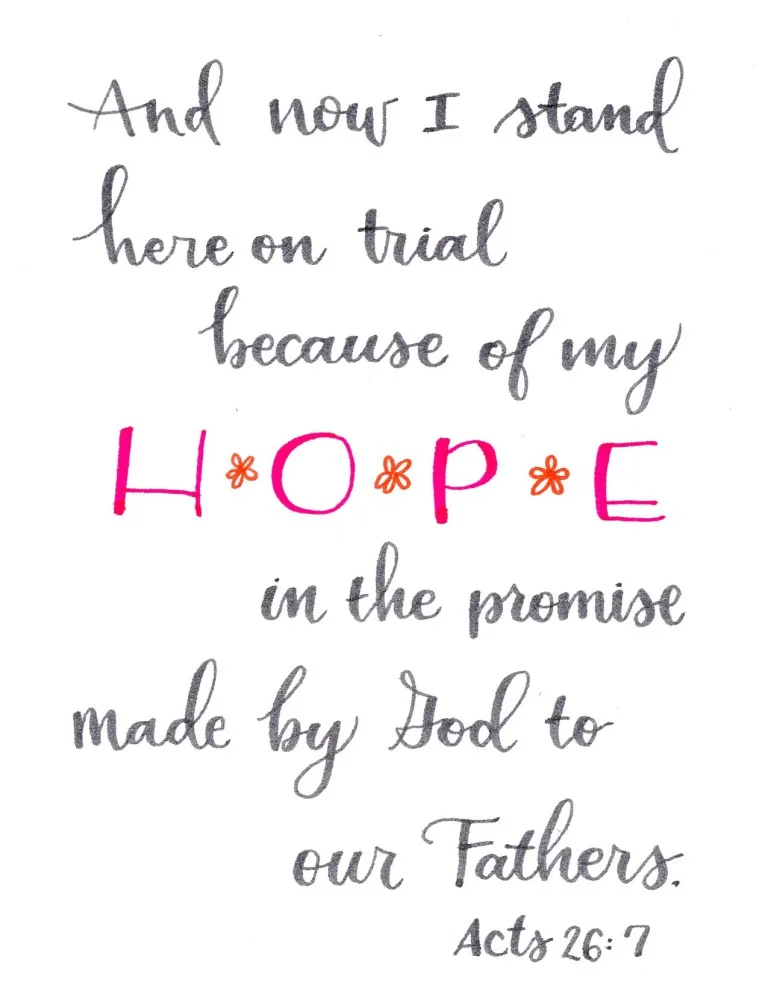 And now I stand
here on trial
because of my
HOPE
in the promise
made by God to
our Fathers.
Acts 26:7